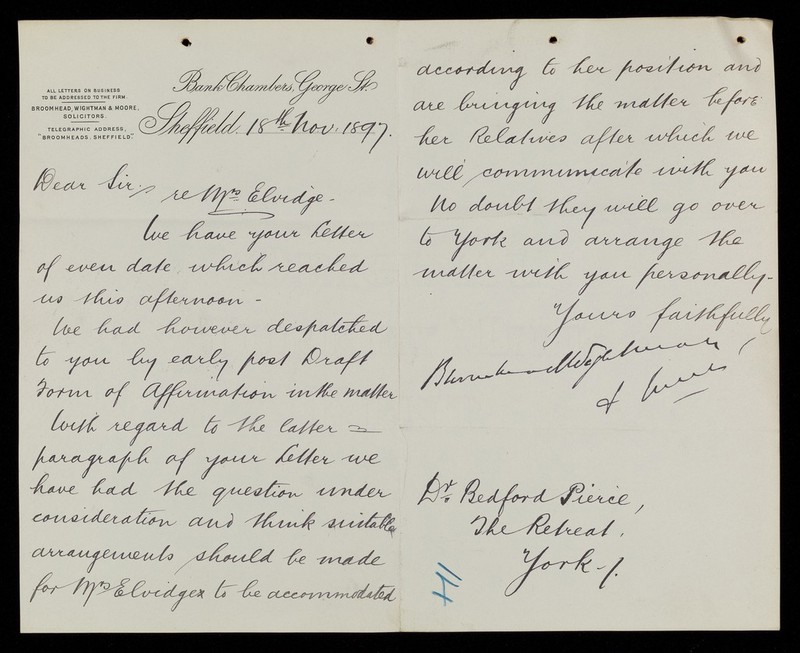 ALL LETTERS ON BUSINESS
TO BE ADDRESSED TO THE FIRM.
BROOMHEAD, WIGHTMAN & MOORE,
SOLICITORS.
TELEGRAPHIC ADDRESS,
"BROOMHEADS. SHEFFIELD."
Bank Chambers, George St.
Sheffield. 18th Nov. 1897.
Dear Sir,
re Mrs Elvidge -
We have your letter
of even date which reached
us this afternoon -
We had however despatched
to you by early post Draft
Form of Affirmation in the matter
With regard to the latter =
paragraph of your letter we
have had the question under
consideration and think suitable
arrangements should be made
for Mrs Elvidge to be accommodated
according to her position and
are bringing the matter before
her Relatives after which we
will communicate with you
No doubt they will go over
to York and arrange the
matter with you personally -
Yours faithfully
Broomhead Wightman
& Moore
Dr. Bedford Pierce,
The Retreat.
York -/.
114